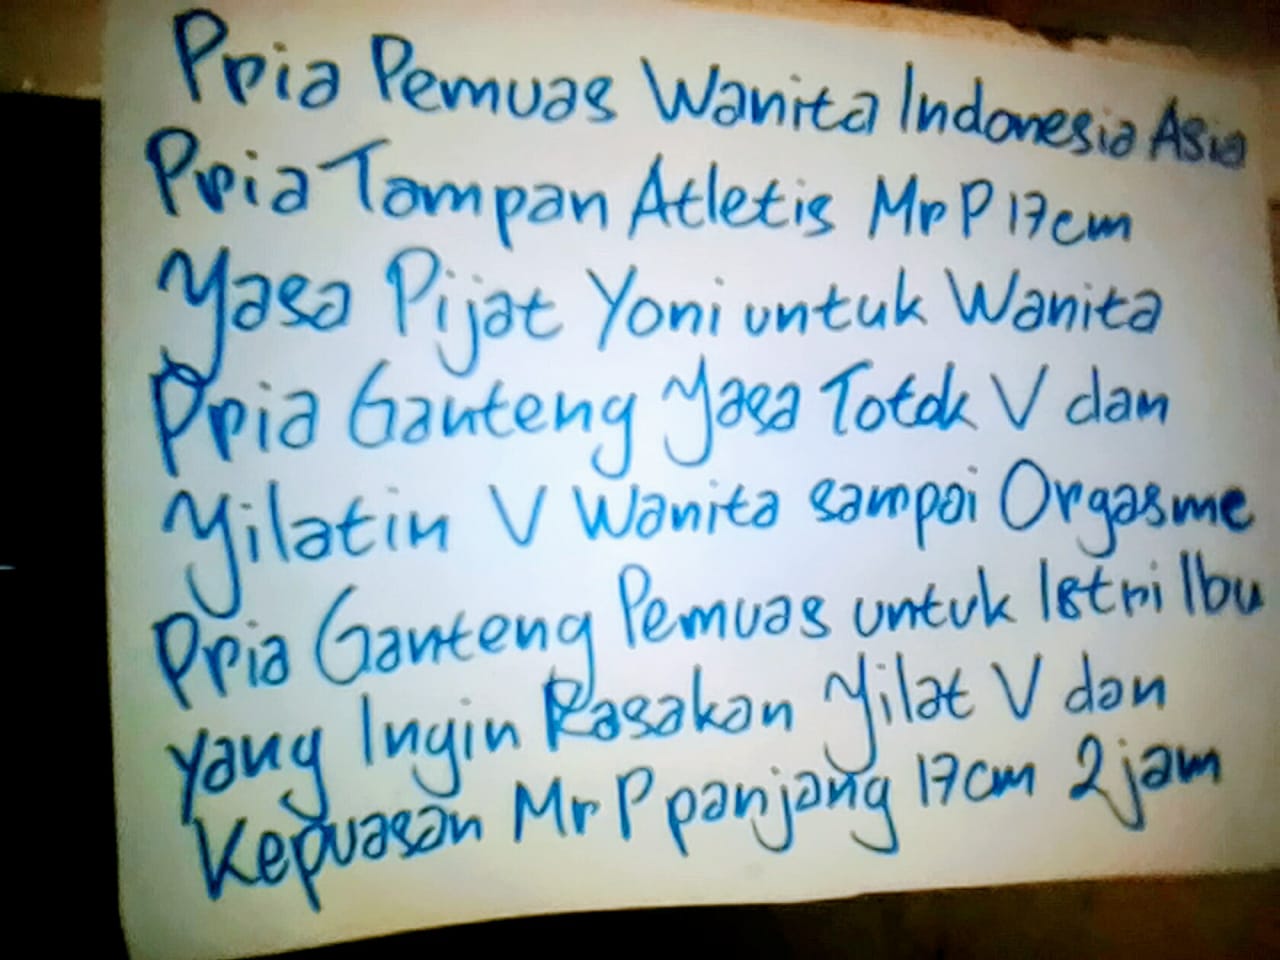 Pria Pemuas Wanita Indonesia Asia
Pria Tampan Atletis Mr P 17cm
Yasa Pijat Yoni untuk Wanita
Pria Ganteng Yasa Totok V dan
Yilatin V Wanita sampai Orgasme
Pria Ganteng Pemuas untuk Istri Ibu
yang Ingin Rasakan Yilat V dan
Kepuasan Mr P panjang 17cm 2 jam